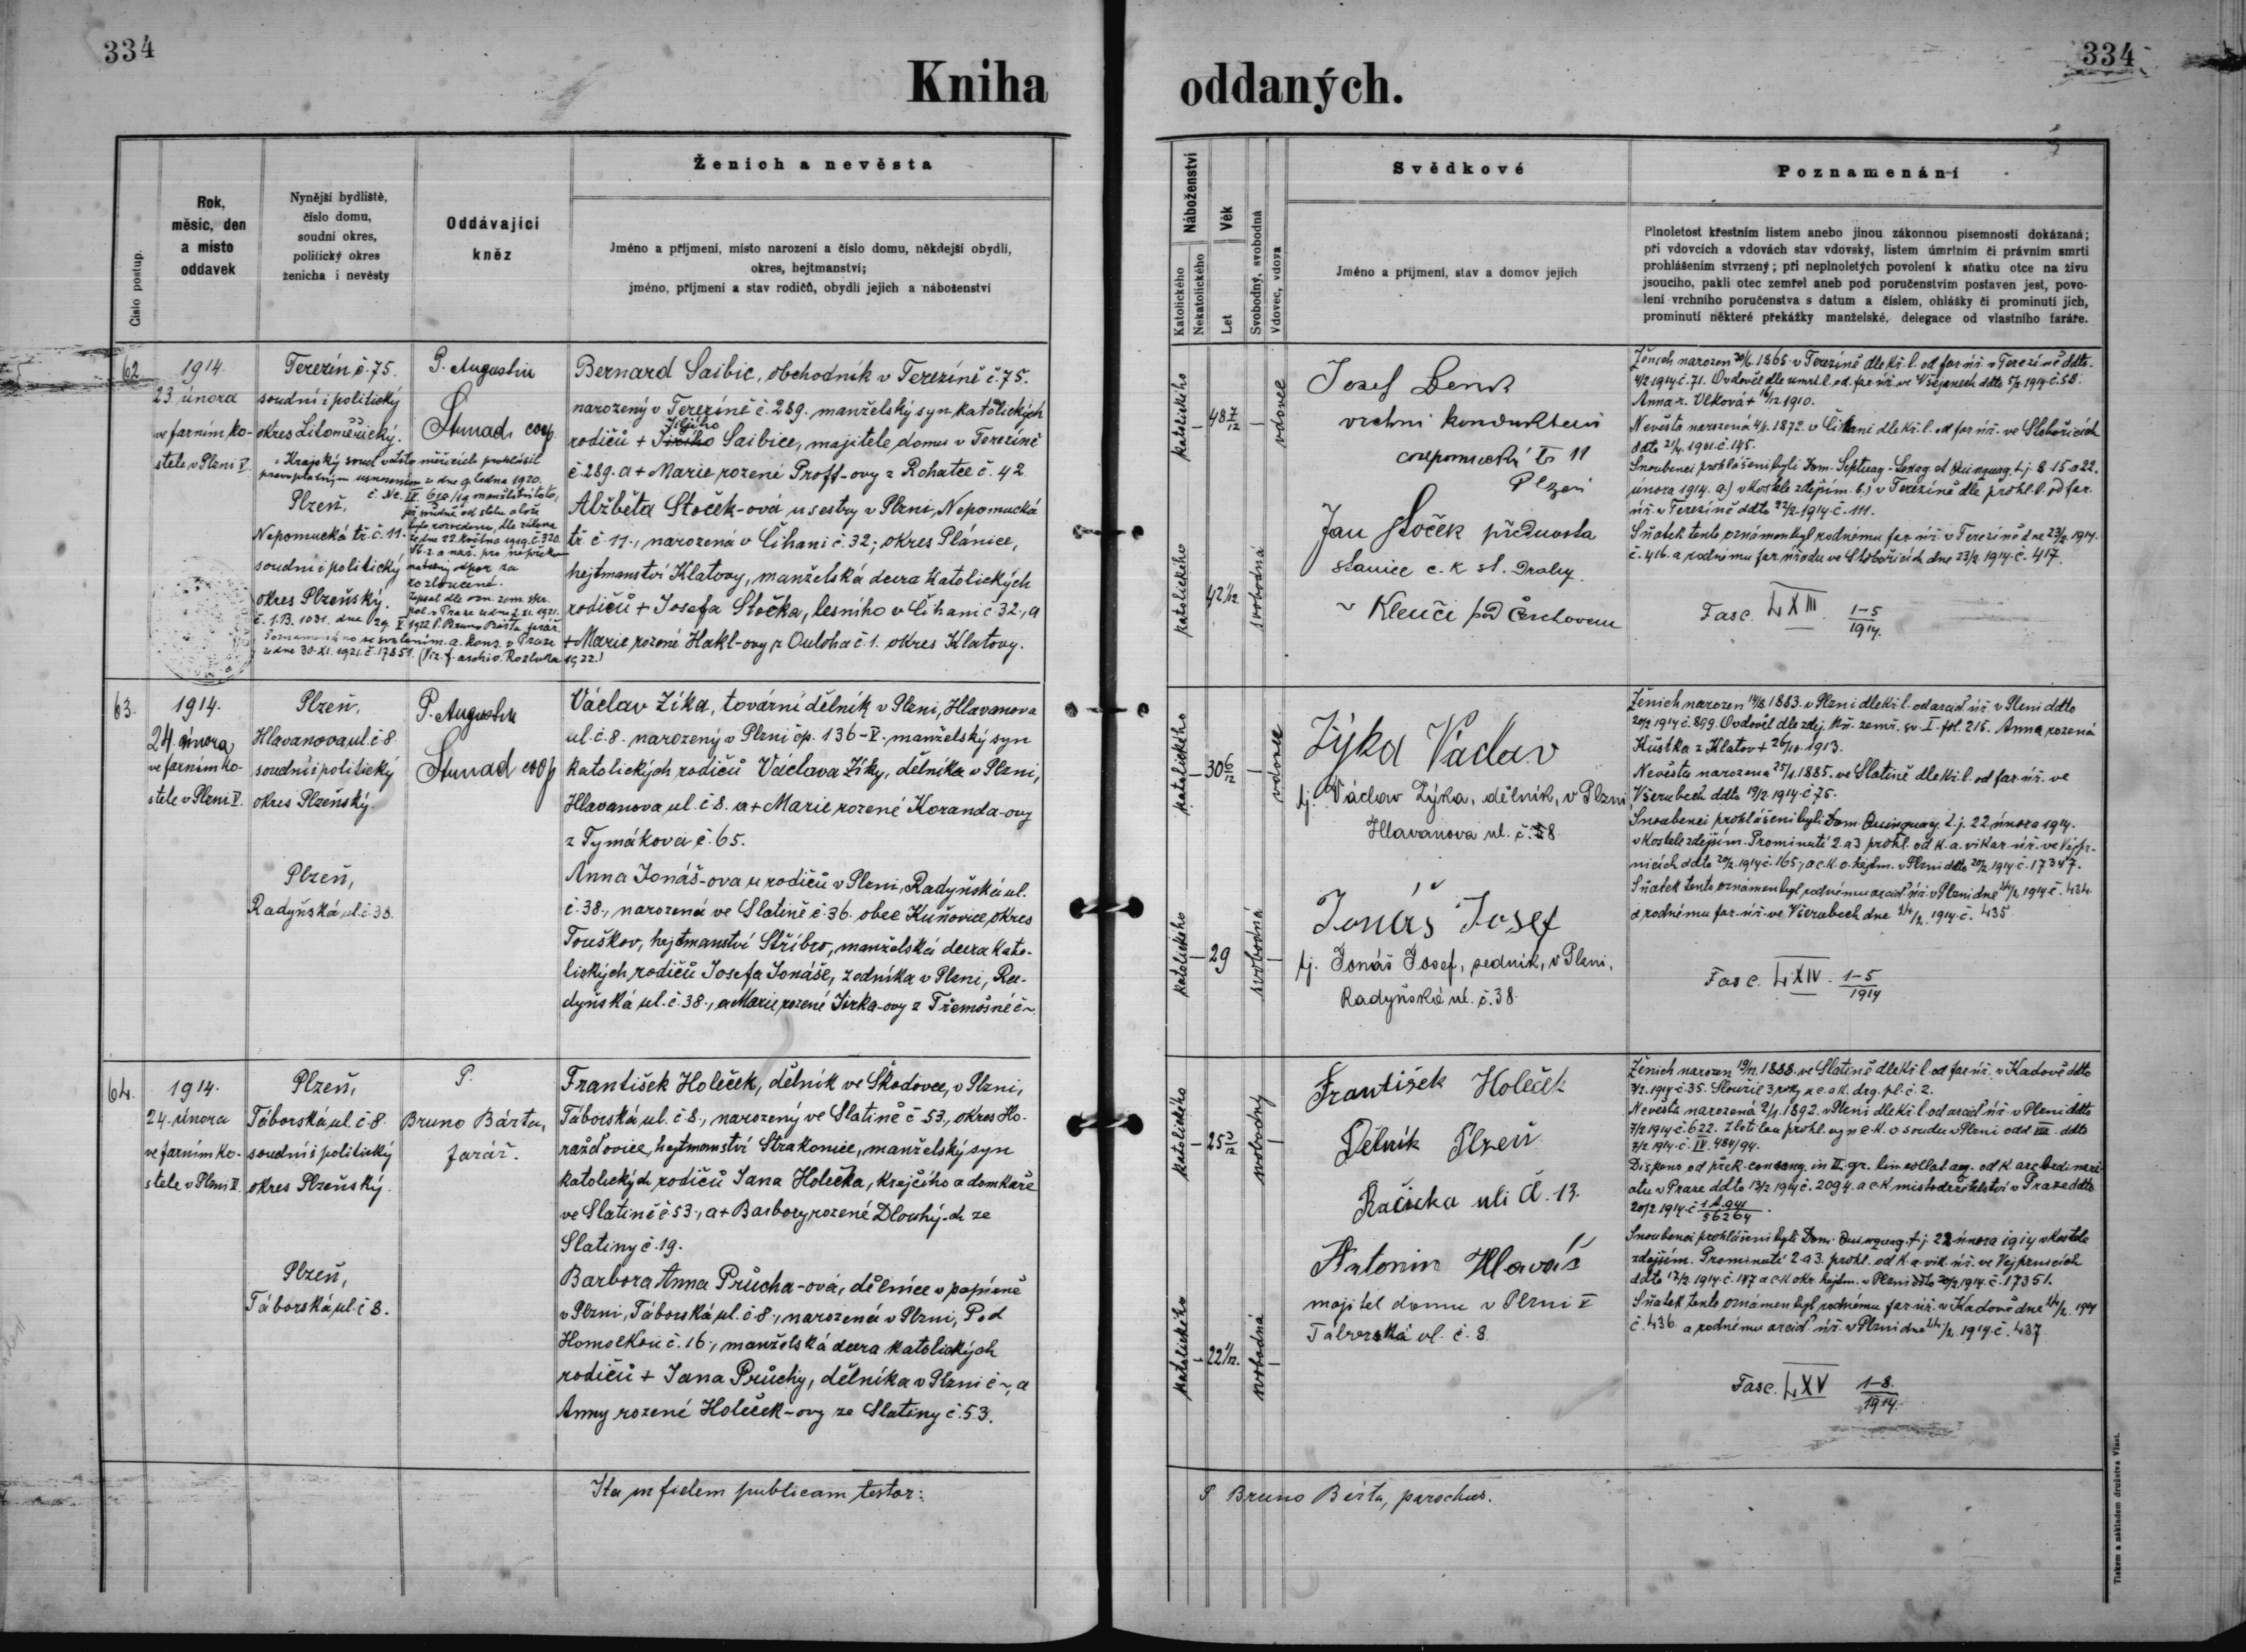 334
334
Kniha oddaných.
Číslo postup.
Rok,
měsíc, den
a místo
oddavek
Nynější bydliště,
číslo domu,
soudní okres,
politický okres
ženicha i nevěsty
Oddávající
kněz
Ženich a nevěsta
Jméno a příjmení, místo narození a číslo domu, někdejší obydlí,
okres, hejtmanství;
jméno, příjmení a stav rodičů, obydlí jejich a náboženství
Náboženství
Katolického
Nekatolického
Věk
Let
Svobodný, svobodná
Vdovec, vdova
Svědkové
Jméno a příjmení, stav a domov jejich
Poznamenání
Plnoletost křestním listem anebo jinou zákonnou písemností dokázaná;
při vdovcích a vdovách stav vdovský, listem úmrtním či právním smrti
prohlášením stvrzený; při neplnoletých povolení k sňatku otce na živu
jsoucího, pakli otec zemřel aneb pod poručenstvím postaven jest, povo-
lení vrchního poručenstva s datum a číslem, ohlášky či prominutí jich,
prominutí některé překážky manželské, delegace od vlastního faráře.
62.
1914.
23 února
ve farním ko-
stele v Plzni V.
Terezín č. 75.
soudní i politický
okres Litoměřický.
Krajský soud v Litoměřicích prohlásil
pravoplatným usnesením z dne 9. ledna 1920.
č. Nc. IV 650/19 manželství toto,
jež průdně od stolu a lože
bylo rozvedeno, dle zákona
ze dne 22. května 1919. č. 320
Sb. z. a nař. pro nepřeko-
natelný odpor za
rozloučené.
Zapsal dle osn. zem. spr.
pol. v Praze z dne 2. XI. 1921.
č. 1.B. 1031. dne 29. V. 1922 P. Bruno Bárta farář.
Poznamenáno se svolením a. kons. v Praze
z dne 30. XI. 1921. č. 17851. (Viz. f. archiv. Rozluka 1922.)
Plzeň,
Nepomucká tř. č. 11.
soudní i politický
okres Plzeňský.
P. Augustin
Štunad coop.
Bernard Saibic, obchodník v Terezíně č. 75.
narozený v Terezíně č. 289. manželský syn katolických
Jiljího
rodičů + Jiřího Saibice, majitele domu v Terezíně
č. 289. a + Marie rozené Proff-ovy z Rohatce č. 42.
Alžběta Stoček-ová u sestry v Plzni, Nepomucká
tř. č. 11., narozená v Číhani č. 32; okres Plánice,
hejtmanství Klatovy, manželská dcera katolických
rodičů + Josefa Stočka, lesního v Číhani č. 32., a
+ Marie rozené Hakl-ovy z Ouloha č. 1. okres Klatovy.
katolického
48 7/12
vdovec
katolického
42 1/12.
svobodná
Josef
vrchní konduktér
Nr 11
Plzeň
Jan Stoček přednosta
stanice c. k. st. Drahy.
v Klenčí pod Čerchovem
Ženich narozen 20/6. 1865. v Terezíně dle kř. l. od far. úř. v Terezíně ddto.
4/2 1914 č. 71. Ovdověl dle úmrt. l. od. far. úř. ve Všejanech ddto 5/2. 1914 č. 58.
Anna r. Vlková + 16/12 1910.
Nevěsta narozená 4/1. 1872. v Číhani dle kř. l. od far. úř. ve Slobořicích
ddto 21/4. 1901. č. 145.
Snoubenci prohlášeni byli Dom. Septuag. Sexag. et Quinquag. t. j. 8 15 a 22.
února 1914. a) v kostele zdejším. b.) v Terezíně dle prohl. l. od far.
úř. v Terezíně ddto 22/2. 1914 č. 111.
Sňatek tento oznámen byl rodnému far. úř. v Terezíně dne 23/2. 1914.
č. 416. a rodnému far. úřadu ve Slobořicích dne 23/2 1914 č. 417.
Fasc. LXIII 1-5/1914.
63.
1914.
24. února
ve farním ko-
stele v Plzni V.
Plzeň,
Hlavanova ul. č. 8.
soudní i politický
okres Plzeňský.
Plzeň,
Radyňská ul. č. 38.
P. Augustin
Štunad coop
Václav Zíka, tovární dělník v Plzni, Hlavanova
ul. č. 8. narozený v Plzni čp. 136-V. manželský syn
katolických rodičů Václava Zíky, dělníka v Plzni,
Hlavanova ul. č. 8. a + Marie rozené Koranda-ovy
z Tymákova č. 65.
Anna Jonáš-ova u rodičů v Plzni, Radyňská ul.
č. 38., narozená ve Slatině č. 36. obec Kuňovice, okres
Touškov, hejtmanství Stříbro, manželská dcera kato-
lických rodičů Josefa Jonáše, zedníka v Plzni, Ra-
dyňská ul. č. 38., a Marie rozené Jirka-ovy z Třemošné č ~
katolického
30 6/12
vdovec
katolického
29
svobodná
Zýka Václav
tj. Václav Zýka, dělník, v Plzni,
Hlavanova ul. č. 8.
Jonáš Josef
tj. Jonáš Josef, zedník, v Plzni,
Radyňská ul. č. 38.
Ženich narozen 14/8. 1883. v Plzni dle kř. l. od arcid. úř. v Plzni ddto
20/2 1914 č. 899. Ovdověl dle zdej. kn. zemř. sv. I. fol. 215. Anna rozená
Kustka z Klatov + 26/10. 1913.
Nevěsta narozena 25/1. 1885. ve Slatině dle kř. l. od far. úř. ve
Všerubech ddto 19/2. 1914 č. 75.
Snoubenci prohlášeni byli Dom. Quinquag. t. j. 22 února 1914.
v kostele zdejším. Prominutí 2. a 3 prohl. od k. a. vikar. úř. ve Vejpr-
nicích ddto 20/2. 1914 č. 165., a c. k. o. hejtm. v Plzni ddto 20/2. 1914 č. 17347.
Sňatek tento oznámen byl rodnému arcid. úř. v Plzni dne 24/2. 1914 č. 434.
a rodnému far. úř. ve Všerubech dne 24/2. 1914 č. 435.
Fasc. LXIV. 1-5/1914
64.
1914.
24. února
ve farním ko-
stele v Plzni V.
Plzeň,
Táborská ul. č. 8.
soudní i politický
okres Plzeňský.
Plzeň,
Táborská ul. č. 8.
P.
Bruno Bárta,
farář.
František Holeček, dělník ve Škodovce, v Plzni,
Táborská ul. č. 8., narozený ve Slatině č. 53., okres Ho-
ražďovice, hejtmanství Strakonice, manželský syn
katolických rodičů Jana Holečka, krejčího a domkaře
ve Slatině č. 53., a + Barbory rozené Dlouhý-ch ze
Slatiny č. 19.
Barbora Anna Průcha-ová, dělnice v papírně
v Plzni, Táborská ul. č. 8., narozená v Plzni, Pod
Homolkou č. 16., manželská dcera katolických
rodičů + Jana Průchy, dělníka v Plzni č ~, a
Anny rozené Holeček-ovy ze Slatiny č. 53.
katolického
svobodný
katolického
22 1/12.
svobodná
František Holeček
Dělník Plzeň
uli Č. 13.
Antonín Hlaváč
majitel domu v Plzni V
Táborská ul. č. 8.
Ženich narozen 19/12. 1888. ve Slatině dle kř. l. od far. úř. v Kadově ddto
3/2. 1914 č. 35. Sloužil 3 roky u c. a k. drg. pl. č. 2.
Nevěsta narozená 2/1. 1892. v Plzni dle kř. l. od arcid. úř. v Plzni ddto
7/2 1914 č. 622. Zletilou prohl. vyn c. k. o soudu v Plzni odd VIII. ddto
7/2. 1914 č. IV. 484/94.
Dispens od přek. consang. in II. gr. lin collat aeq. od k. arc. ordinari-
atu v Praze ddto 13/2. 1914 č. 2094. a c. k. místodržitelství v Praze ddto
20/2. 1914 č
Snoubenci prohlášeni byli Dom. Quinquag. t. j. 22 února 1914 v kostele
zdejším. Prominutí 2 a 3. prohl. od k. a. vik. úř. ve Vejprnicích
ddto 17/2. 1914 č. 147 a c. k. okr. hejtm. v Plzni ddto 20/2. 1914. č. 17351.
Sňatek tento oznámen byl rodnému far. úř. v Kadově dne 24/2. 1914
č. 436. a rodnému arcid. úř. v Plzni dne 24/2. 1914 č. 437.
Fasc. LXV 1-8./1914.
Ita in fidem publicam testor: P. Bruno Bárta, parochus.
Tiskem a nákladem družstva Vlast.